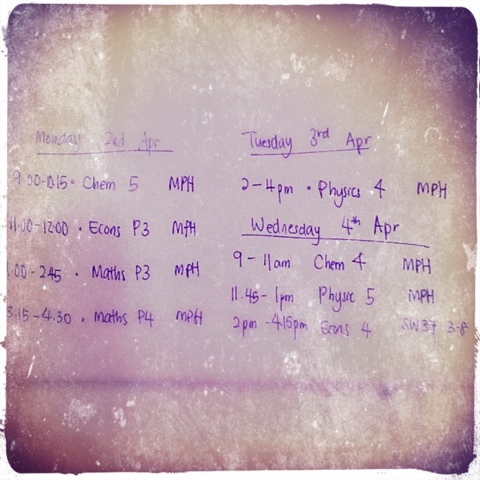 Monday 2nd Apr
9.00-10.15 • Chem 5 MPH
11.00-12.00 • Econs P3 MPH
.00-2.45 • Maths P3 MPH
3.15-4.30 • Maths P4 MPH
Tuesday 3rd Apr
2-4pm • Physics 4 MPH
Wednesday 4th Apr
9-11am Chem 4 MPH
11.45-1pm Physic 5 MPH
2pm-4.15pm Econs 4 SW37 3-8